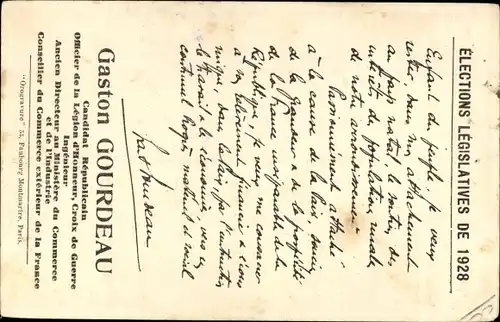 ÉLECTIONS LÉGISLATIVES DE 1928
Enfant du peuple, je veux
rester dans mon attachement
au pays natal, le soutien des
intérêts des populations rurales
de notre arrondissement
Passionnément attaché
à la cause de la paix, soucieux
de la grandeur et de la prospérité
de la France inséparable de la
République, je veux me consacrer
à son relèvement financier & écono
mique, dans la paix, par l'instruction
le travail & l'économie, vers un
continuel Progrès matériel et social
Gaston GOURDEAU
Candidat Républicain
Officier de la Légion d'Honneur, Croix de Guerre
Ingénieur
Ancien Directeur au Ministère du Commerce
et de l'Industrie
Conseiller du Commerce extérieur de la France
"Orogravure" 55, Faubourg Montmartre, Paris.